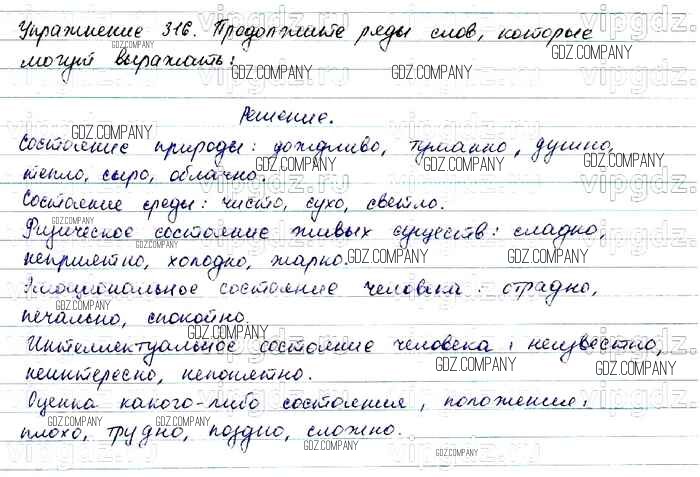 Упражнение 316. Продолжите ряды слов, которые
могут выражать:
Решение.
Состояние природы: дождливо, туманно, душно,
тепло, сыро, облачно.
Состояние среды: чисто, сухо, светло.
Физическое состояние живых существ: сладко,
неприятно, холодно, жарко.
Эмоциональное состояние человека: отрадно,
печально, спокойно.
Интеллектуальное состояние человека: неизвестно,
неинтересно, непонятно.
Оценка какого-либо состояния, положения:
плохо, трудно, поздно, сложно.
GDZ.COMPANY
vipgdz.ru